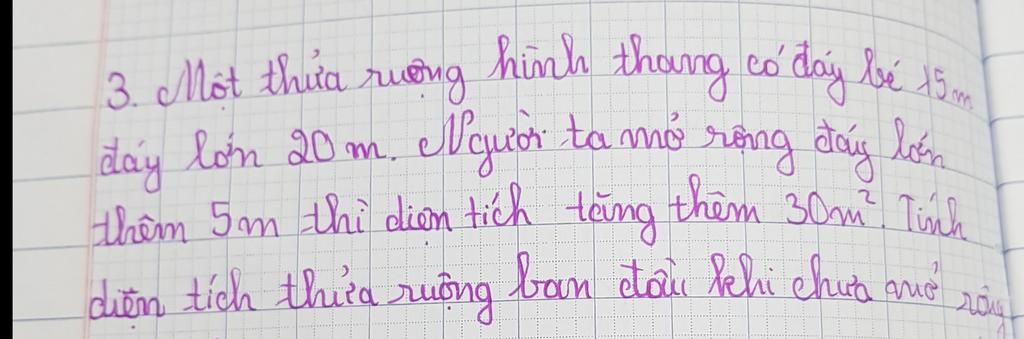 3. Một thửa ruộng hình thang có đáy bé 15m
đáy lớn 20m. Người ta mở rộng đáy lớn
thêm 5m thì diện tích tăng thêm 30m². Tính
diện tích thửa ruộng ban đầu khi chưa mở rộng